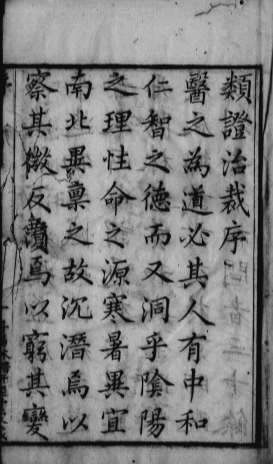 類證治裁序
醫之為道必其人有中和
仁智之德而又洞乎陰陽
之理性命之源寒暑異宜
南北異稟之故沉潛焉以
察其微反覆焉以窮其變